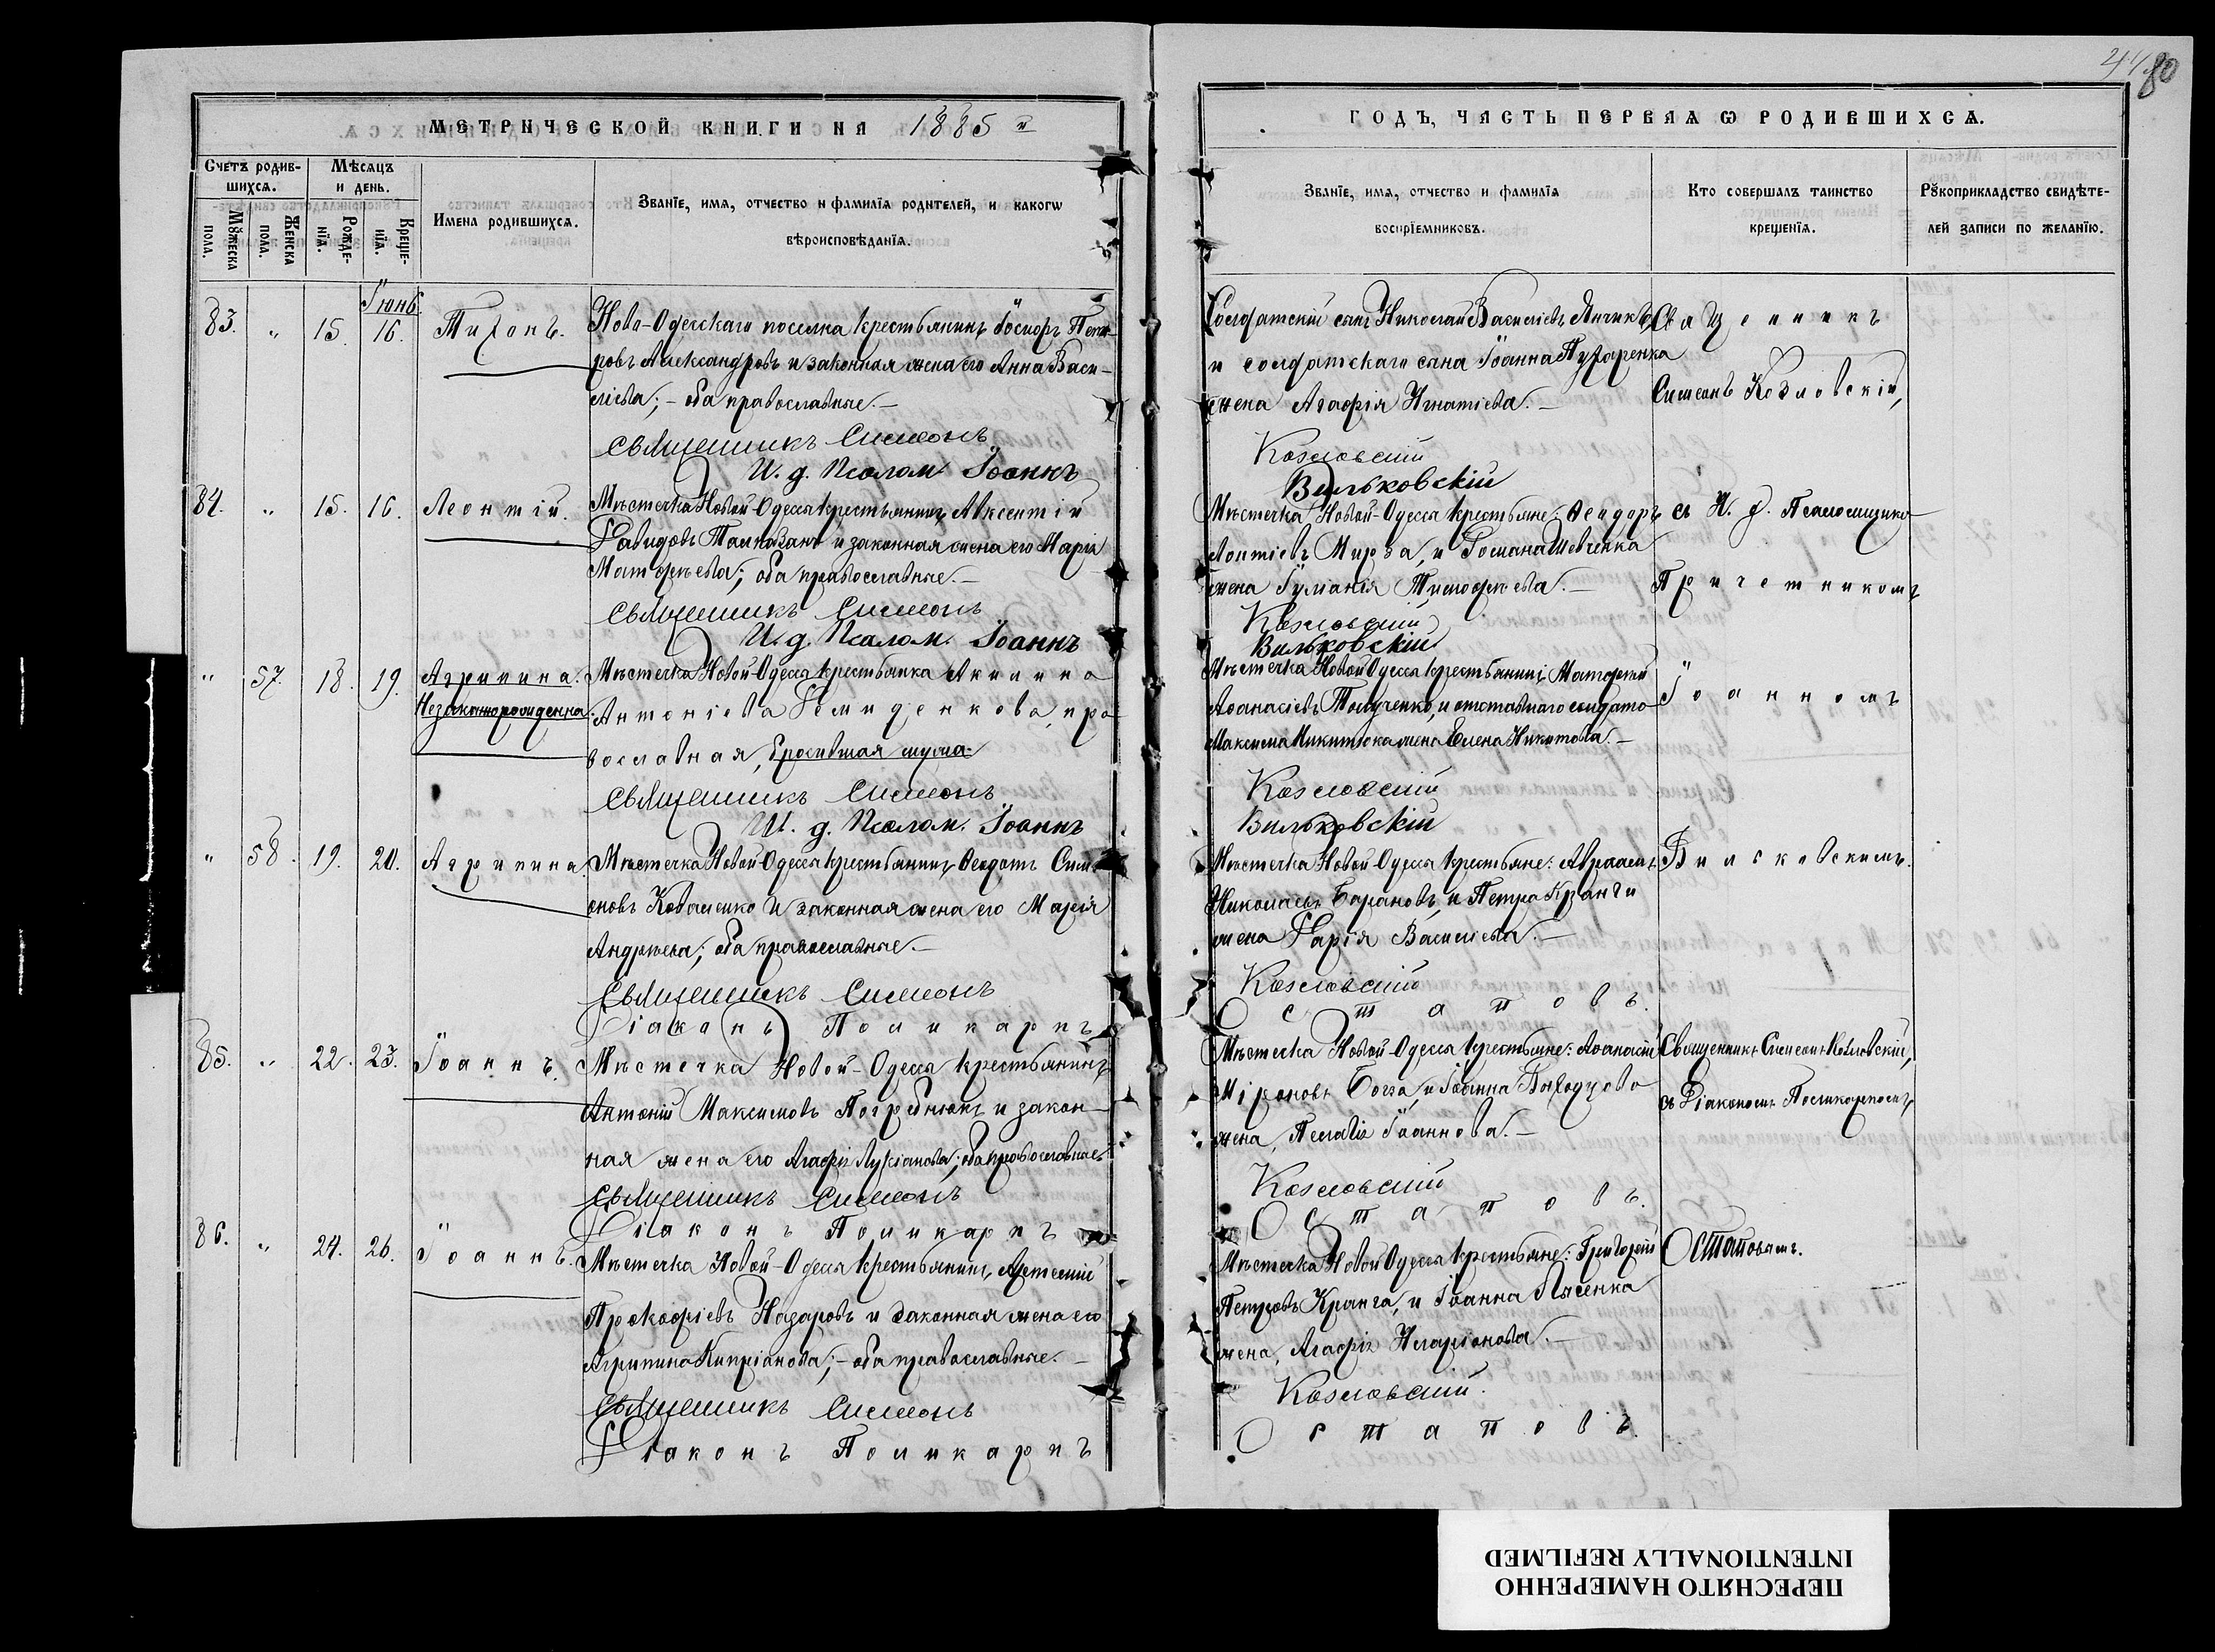 МЕТРИЧЕСКОЙ КНИГИ НА 1885 й
Счетъ родившихся.
Мѣсяцъ и день.
Мꙋжеска пола.
Женска пола.
Рожденїя.
Крещенїя.
Имена родившихся.
Званїе, имя, отчество и фамилїя родителей, и какогѡ
вѣроисповѣданїя.
Іюнь.
83. „ 15. 16. Тихонъ.
Ново-Одесскаго поселка крестьянинъ Іосифъ Пет-
ровъ Александровъ и законная жена его Анна Васи-
ліева; – оба православные. –
Священникъ Симеонъ
И. д. Псалом. Іоаннъ
84. „ 15. 16. Леонтій.
Мѣстечка Новой-Одесса крестьянинъ Авксентій
Давидовъ и законная жена его Марія
Матфѣева; оба православные. –
Священникъ Симеонъ
И. д. Псалом. Іоаннъ
„ 57. 18. 19. Агрипина.
Незаконнорожденна.
Мѣстечка Новой Одесса крестьянка Акилина
Антоніева Демиденкова, пра-
вославная,
Священникъ Симеонъ
И. д. Псалом. Іоаннъ
„ 58. 19. 20. Агрипина.
Мѣстечка Новой-Одесса крестьянинъ Ѳеодотъ Сим-
оновъ Коваленко и законная жена его Марія
Андреева; оба православные. –
Священникъ Симеонъ
Діаконъ Поликарпъ
85. „ 22. 23. Іоаннъ.
Мѣстечка Новой-Одесса крестьянинъ
Антоній Максимовъ Погребнюкъ и закон-
ная жена его Агафія Лукіанова; оба православные
Священникъ Симеонъ
Діаконъ Поликарпъ
86. „ 24. 26. Іоаннъ.
Мѣстечка Новой-Одесса крестьянинъ Артемій
Прокофіевъ Назаровъ и законная жена его
Агрипина Кипріанова; – оба православные. –
Священникъ Симеонъ
Діаконъ Поликарпъ
80
ГОДЪ, ЧАСТЬ ПЕРВАЯ Ѡ РОДИВШИХСЯ.
Званїе, имя, отчество и фамилїя
воспрїемниковъ.
Кто совершалъ таинство
крещенїя.
Рꙋкоприкладство свидѣте-
лей записи по желанїю.
Солдатскій сынъ Николай Василіевъ
и солдатскаго сына Іоанна Пухаренка
жена Агафія Игнатіева. –
Козловскій
Вильковскій
Священникъ
Симеонъ Козловскій,
Мѣстечка Новой-Одесса крестьяне: Ѳеодоръ
Мирза, и Романа Шевченка
жена Іуліанія Тимофѣева. –
Козловскій
Вильковскій
съ И. д. Псаломщика
Причетникомъ
Мѣстечка Новой Одесса крестьянинъ Матфей
Аѳанасіевъ и отставнаго солдата
Максима Микитюка жена Елена Никитова. –
Козловскій
Вильковскій
Іоанномъ
Мѣстечка Новой-Одесса крестьяне: Авраамъ
Николаевъ Барановъ, и Петра Кранги
жена Дарія Василіева. –
Козловскій
Остаповъ.
Вильковскимъ.
Мѣстечка Новой-Одесса крестьяне: Аѳанасій
Міроновъ и Іоанна
жена, Пелагія Іоаннова. –
Козловскій
Остаповъ.
Священникъ Симеонъ Козловскій,
съ Діакономъ Поликарпомъ
Мѣстечка Новой Одесса крестьяне: Григорій
Петровъ Кранга, и Іоанна Лысенка
жена, Агафія Иларіонова. –
Козловскій.
Остаповъ.
Остаповымъ.
ПЕРЕСНЯТО НАМЕРЕННО
INTENTIONALLY REFILMED